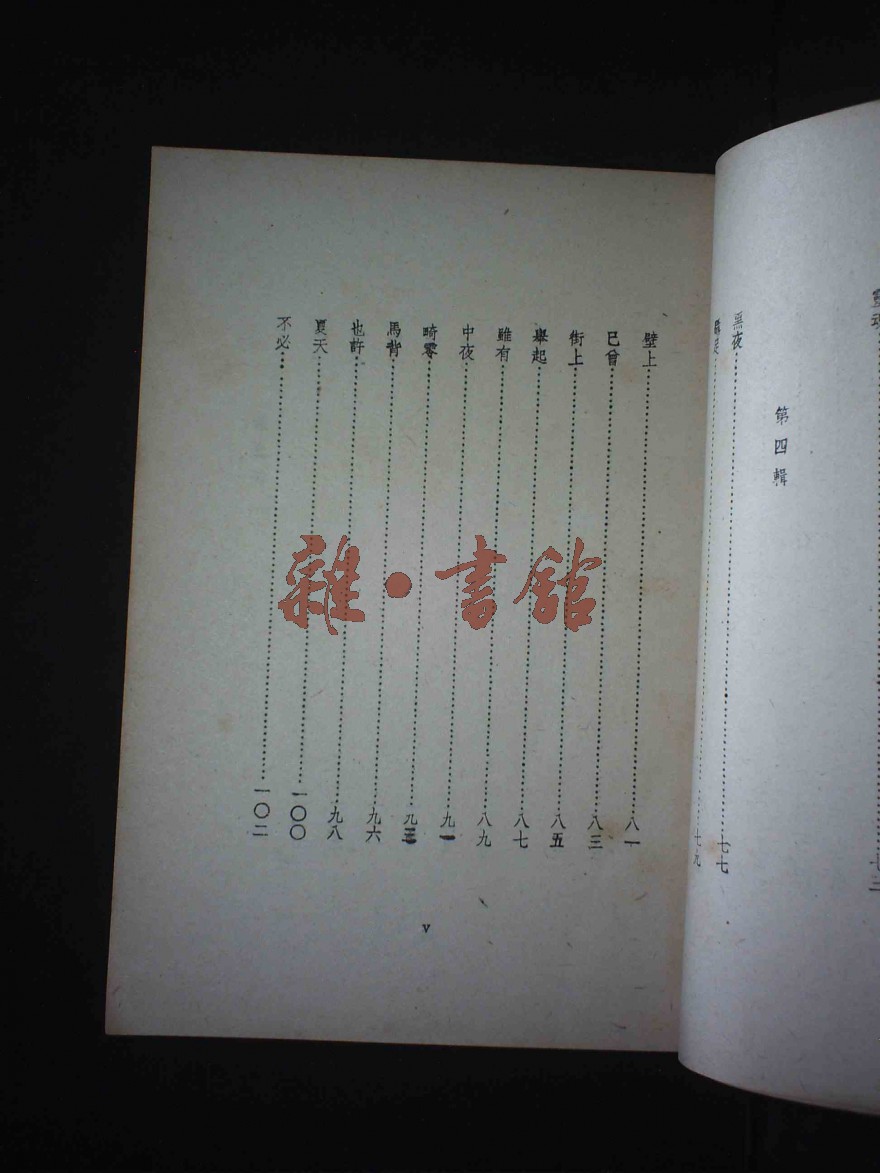 第四輯
黑夜⋯⋯七七
七九
壁上⋯⋯八一
已曾⋯⋯八三
街上⋯⋯八五
舉起⋯⋯八七
雖有⋯⋯八九
中夜⋯⋯九一
畸零⋯⋯九三
馬背⋯⋯九六
也許⋯⋯九八
夏天⋯⋯一〇〇
不必⋯⋯一〇二
v
雜·書館